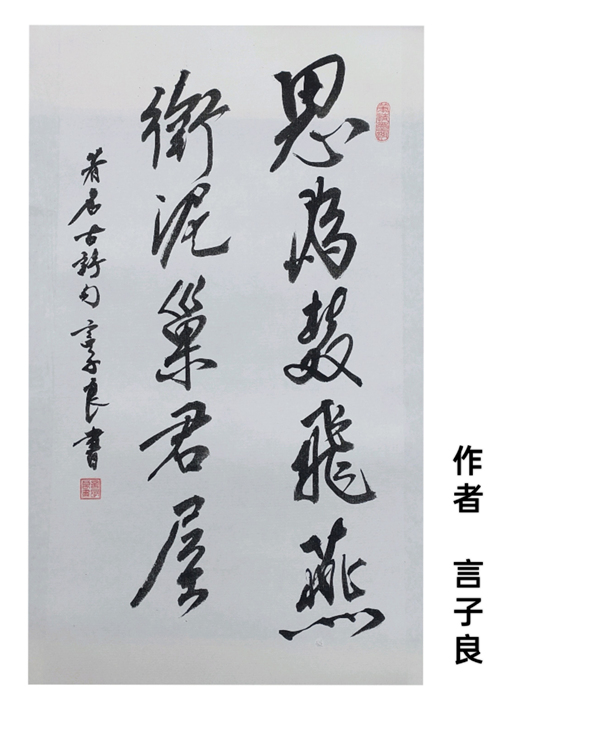 思為雙飛燕
銜泥巢君屋
著名古詩句 言子良書
作者 言子良